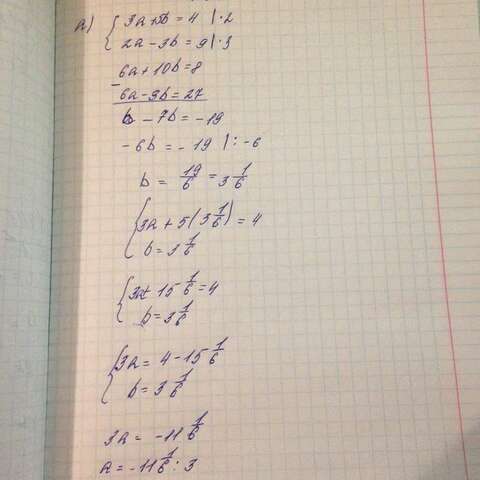 а) { 3a+5b = 4 | ·2
2a - 3b = 9 | ·3
- 6a + 10b = 8
6a - 9b = 27
b - 7b = -19
-6b = -19 | : -6
b = 19/6 = 3 1/6
{ 3a + 5(3 1/6) = 4
b = 3 1/6
{ 3a + 15 1/6 = 4
b = 3 1/6
{ 3a = 4 - 15 1/6
b = 3 1/6
3a = -11 1/6
a = -11 1/6 : 3